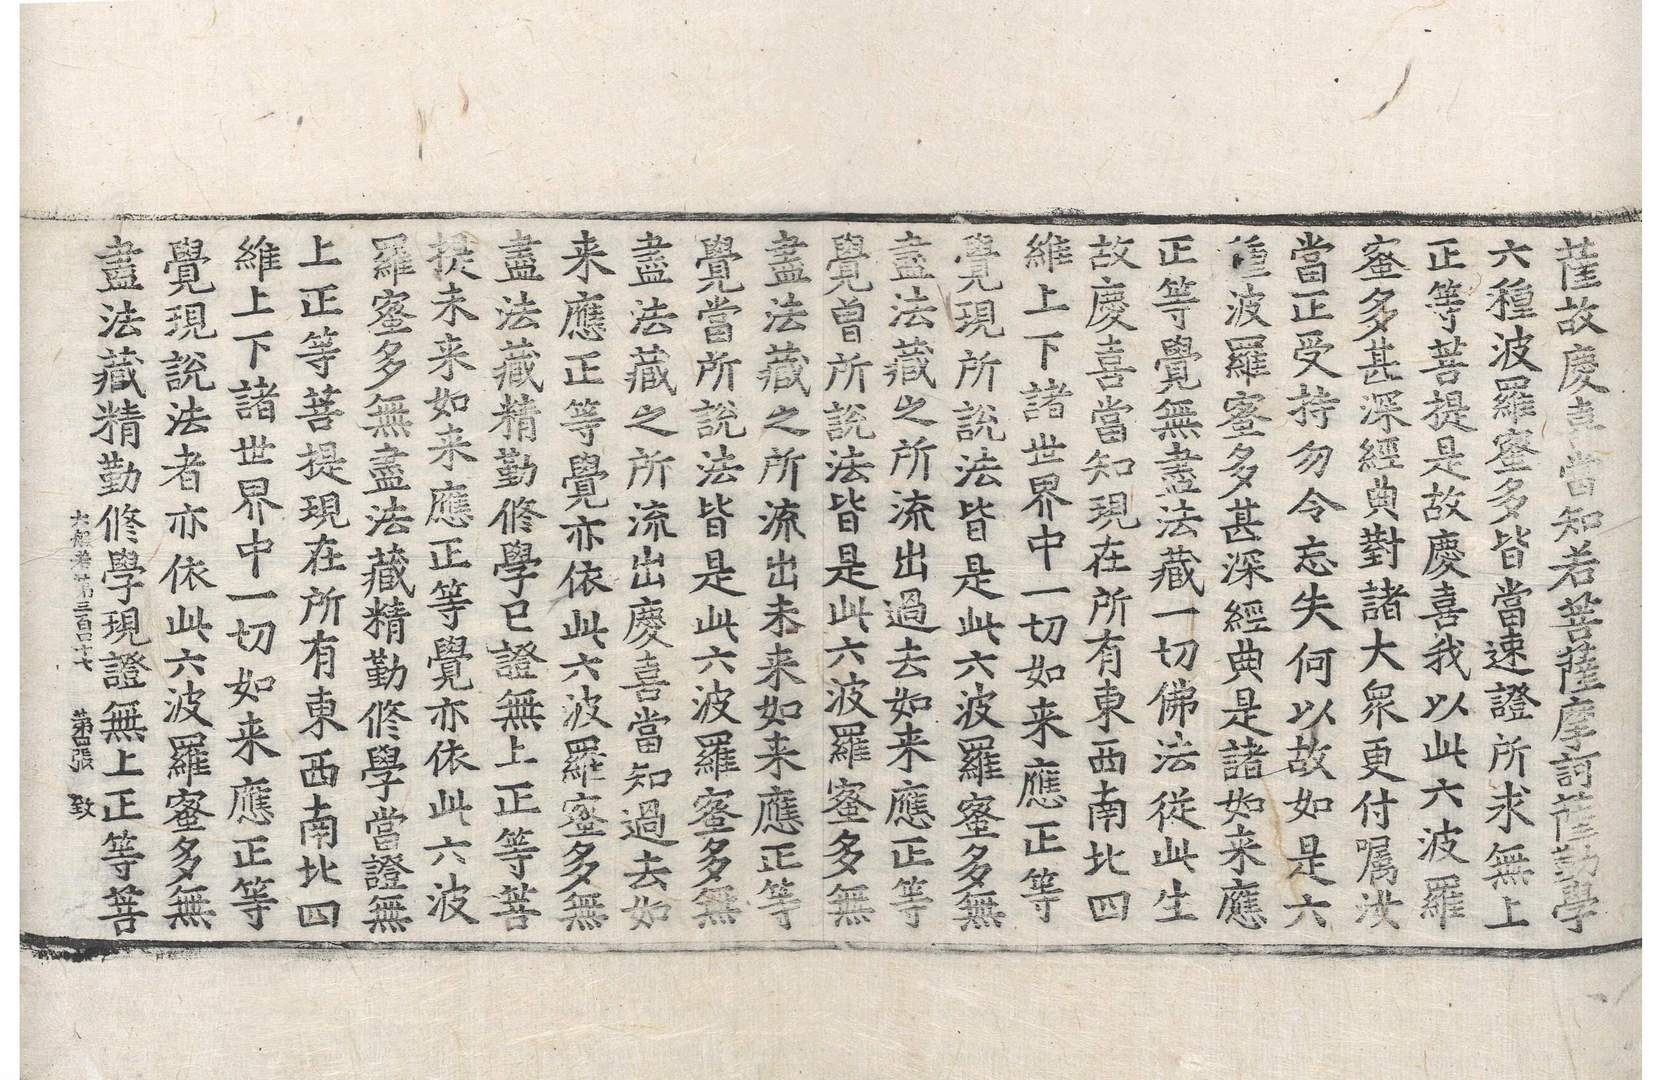 薩故慶喜當知若菩薩摩訶薩勤學
六種波羅蜜多皆當速證所求無上
正等菩提是故慶喜我以此六波羅
蜜多甚深經典對諸大衆更付囑汝
當正受持勿令忘失何以故如是六
種波羅蜜多甚深經典是諸如來應
正等覺無盡法藏一切佛法從此生
故慶喜當知現在所有東西南北四
維上下諸世界中一切如来應正等
覺現所說法皆是此六波羅蜜多無
盡法藏之所流出過去如来應正等
覺曾所說法皆是此六波羅蜜多無
盡法藏之所流出未来如来應正等
覺當所說法皆是此六波羅蜜多無
盡法藏之所流出慶喜當知過去如
来應正等覺亦依此六波羅蜜多無
盡法藏精勤修學已證無上正等菩
提未来如来應正等覺亦依此六波
羅蜜多無盡法藏精勤修學當證無
上正等菩提現在所有東西南北四
維上下諸世界中一切如来應正等
覺現說法者亦依此六波羅蜜多無
盡法藏精勤修學現證無上正等菩
大般若第三百四十七 第四張 致